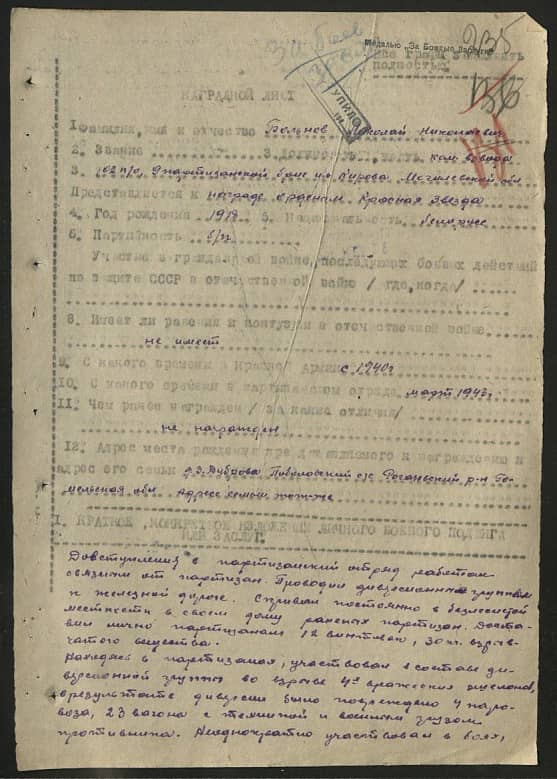 235
Медалью „За Боевые Заслуги"
полностью
НАГРАДНОЙ ЛИСТ
1 Фамилия, имя и отчество Николай Николаевич
2. Звание 3. Должность, часть ком. взвода
3. партизанский им. Кирова Могилевской обл
Представляется к награде орденом Красная Звезда
4. Год рождения 1918 5. Национальность белорус
6. Партийность б/п
Участие в гражданской войне, последующих боевых действий
по защите СССР в отечественной войне / где, когда/
8. Имеет ли ранения и контузии в отечественной войне
не имеет
9. С какого времени в Красной Армии с 1940 г
10. С какого времени в партизанском отряде март 1943 г
11. Чем ранее награжден / за какие отличия/
не награжден
12. Адрес места рождения представляемого к награждению и
адрес его семьи Дуброва с/с р-н Го-
мельская обл Адрес семьи
I. КРАТКОЕ, КОНКРЕТНОЕ ИЗЛОЖЕНИЕ ЛИЧНОГО БОЕВОГО ПОДВИГА
ИЛИ ЗАСЛУГ
До вступления в партизанский отряд работал
связным от партизан. Проводил диверсионные группы
к железной дороге. Скрывал постоянно в безлесной
местности в своем дому раненых партизан. Доста-
вил лично партизанам 12 винтовок, 30 кг. взрыв-
чатого вещества.
Находясь в партизанах, участвовал в составе ди-
версионной группы во взрыве 4х вражеских эшелонов,
в результате диверсии было повреждено 4 паро-
воза, 23 вагона с техникой и военным грузом
противника. Неоднократно участвовал в боях,